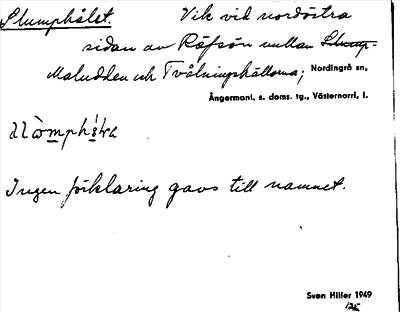 Slumphålet. Vik vid nordöstra
sidan av Räfsön mellan Slump-
Maludden och Tvålningshällorna; Nordingrå sn,
Ångermanl. s. doms. tg., Västernorrl. l.
Ingen förklaring gavs till namnet.
Sven Hiller 1949
125